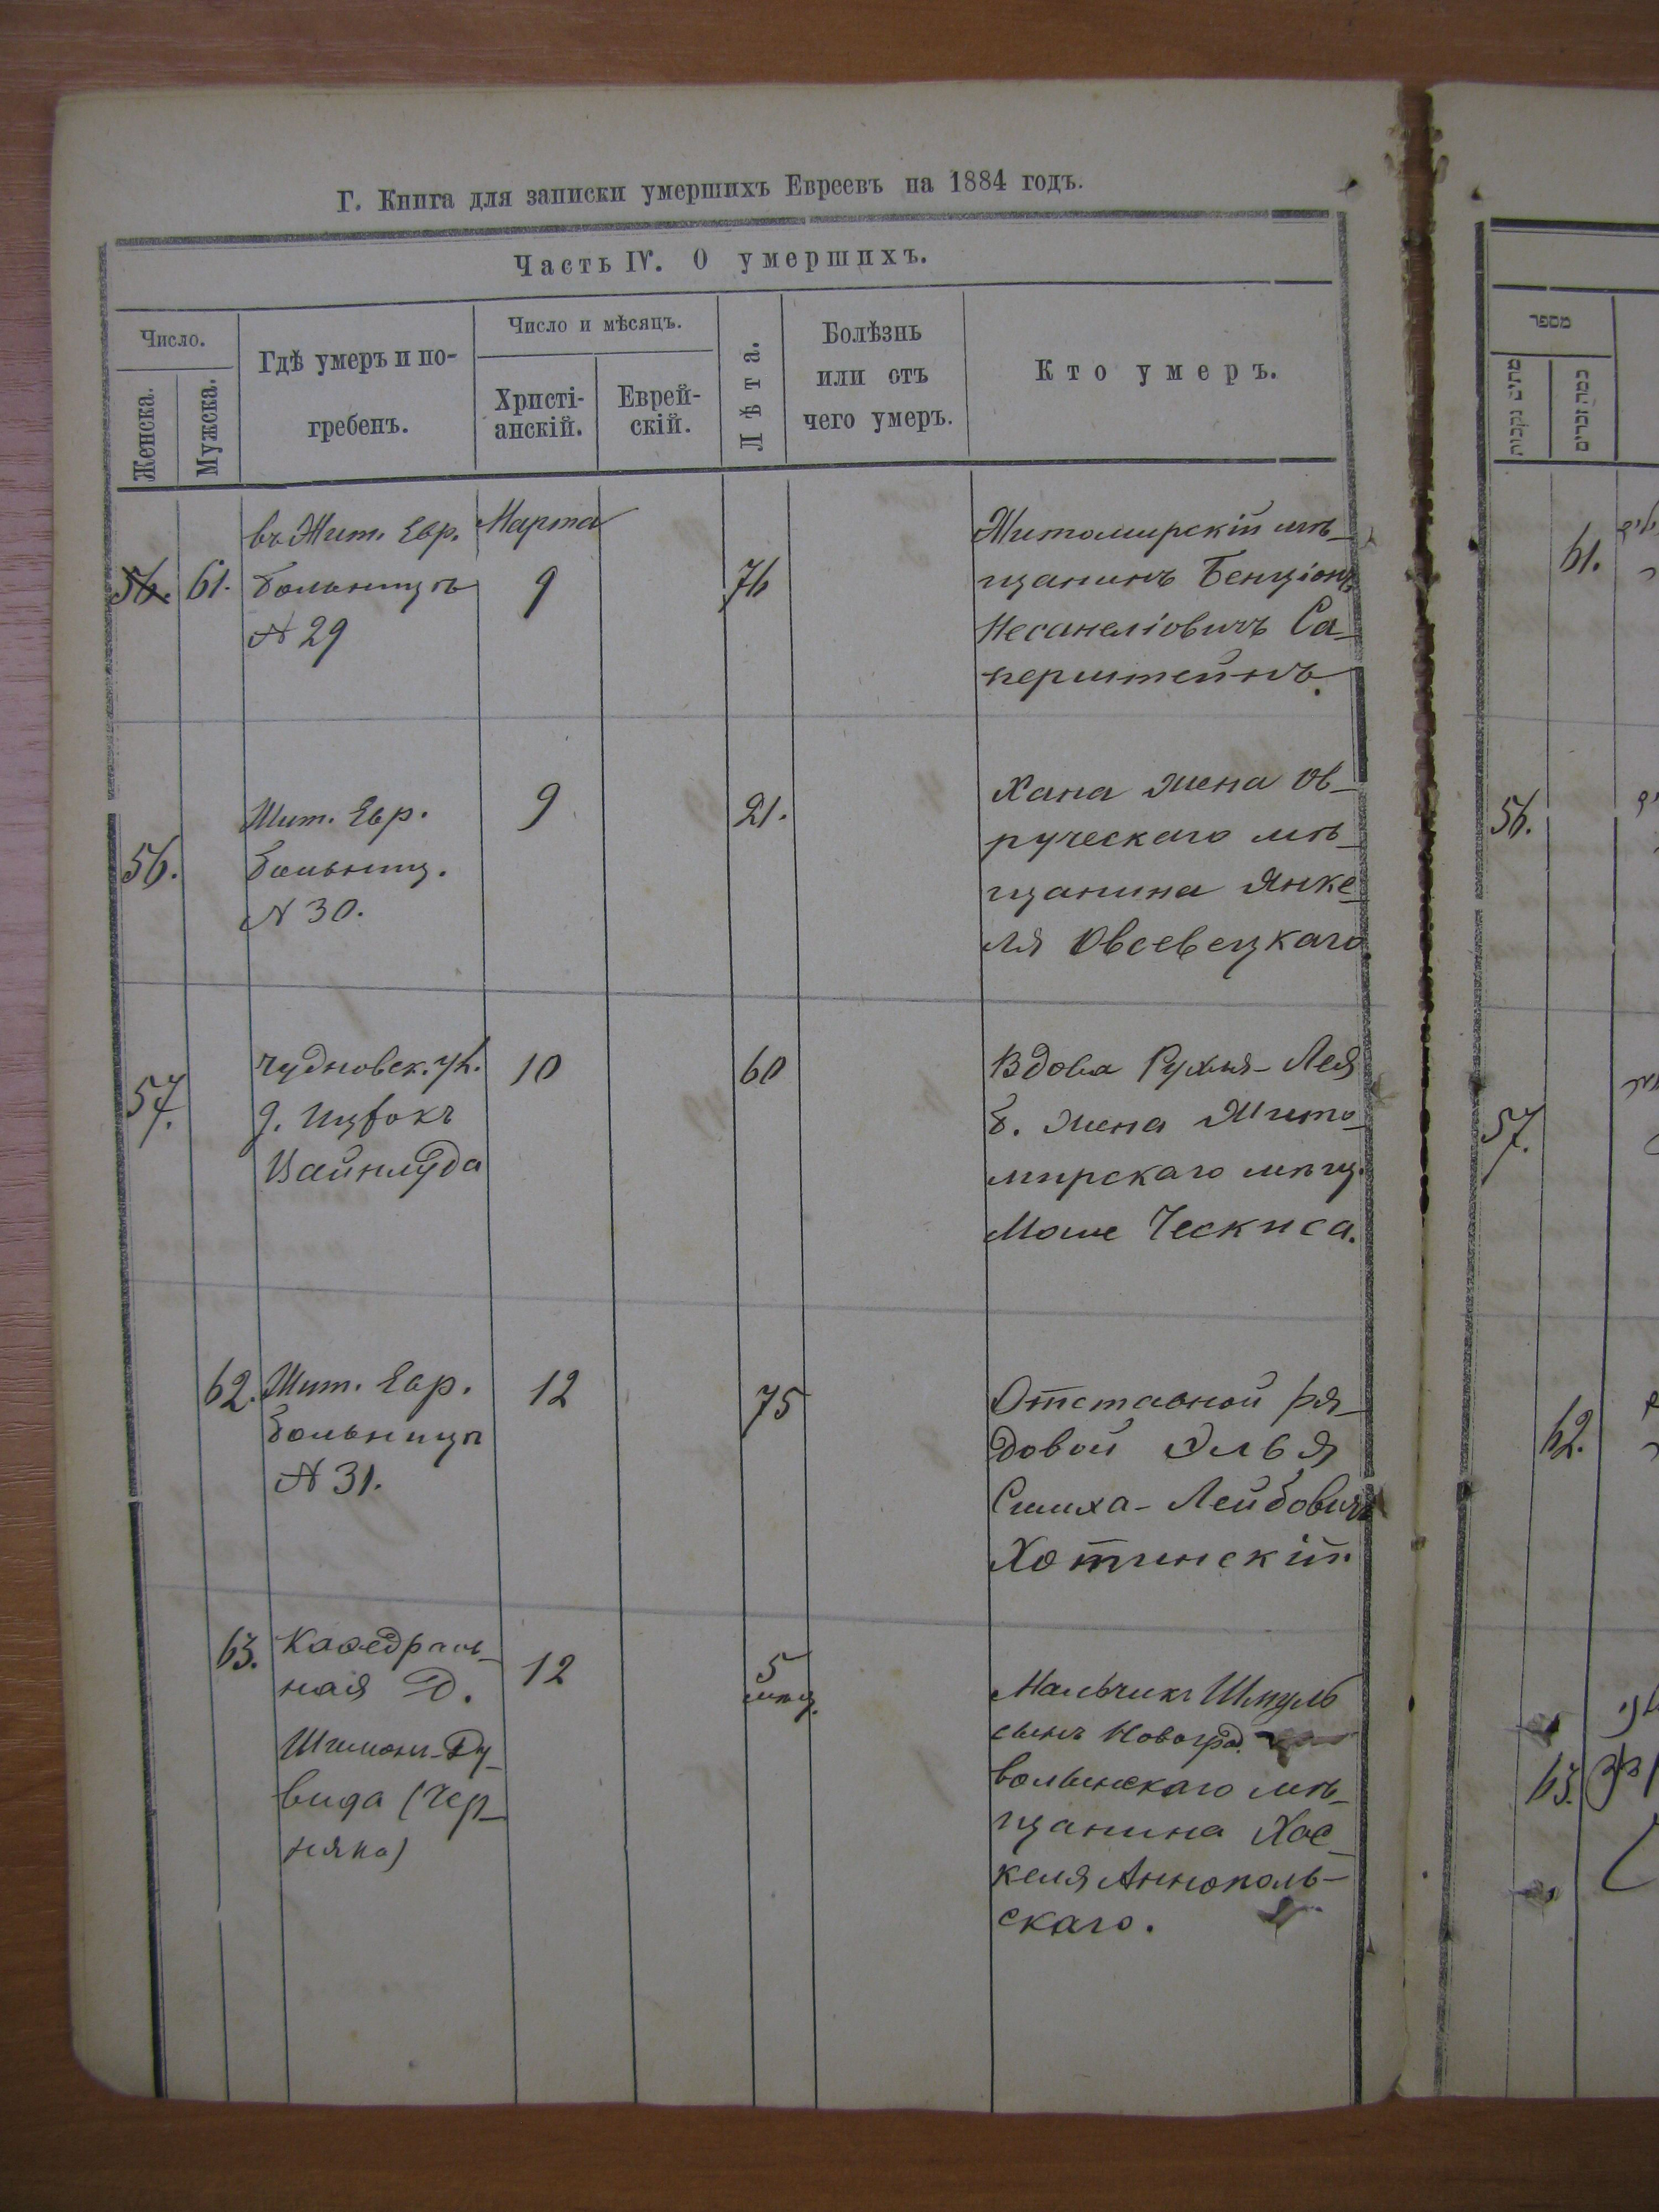 Г. Книга для записки умершихъ Евреевъ на 1884 годъ.
Часть IV. О умершихъ.
Число.
Женска.
Мужска.
Гдѣ умеръ и по-
гребенъ.
Число и мѣсяцъ.
Христі-
анскій.
Еврей-
скій.
Лѣта.
Болѣзнь
или отъ
чего умеръ.
Кто умеръ.
56. 61.
въ Жит. Евр.
больницѣ
№ 29
Марта
9
76
Житомирскій мѣ-
щанинъ Бенціонъ
Несанеліовичъ Са-
перштейнъ.
56.
Жит. Евр.
больниц.
N 30.
9
21.
Хана жена Ов-
руческаго мѣ-
щанина Янке-
ля Овсевецкаго
57.
Чудновск. ул.
д.
10
60
Вдова Рухля-Лея
б. жена Жито-
мирскаго мѣщ.
Моше Ческиса.
62.
Жит. Евр.
больницѣ
№ 31.
12
75
Отставной ря-
довой Элья
Симха-Лейбовичъ
Хотинскій.
63.
Каѳедраль-
ная д.
Шимонъ-Ду-
вида (Чер-
няка)
12
5
мѣц.
Мальчикъ Шмуль
сынъ Новоград.
волынскаго мѣ-
щанина Хас-
келя Аннополь-
скаго.
מספר
61.
56.
57.
62.
63.